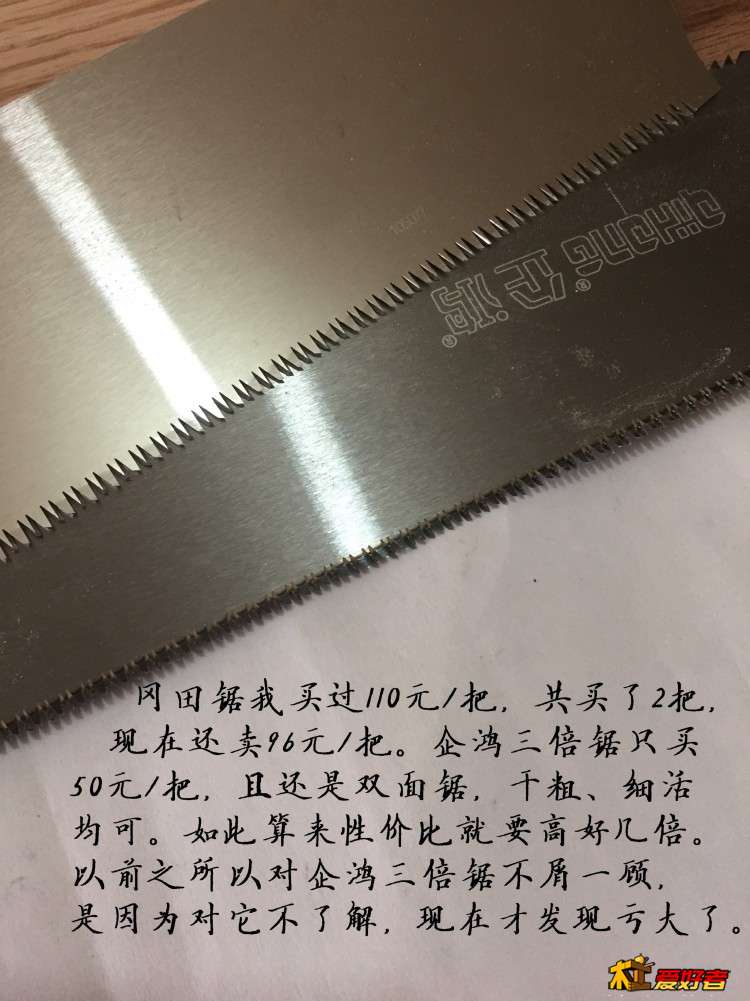 qihong®企鸿®
冈田锯我买过110元/把，共买了2把，
现在还卖96元/把。企鸿三倍锯只买
50元/把，且还是双面锯，干粗、细活
均可。如此算来性价比就要高好几倍。
以前之所以对企鸿三倍锯不屑一顾，
是因为对它不了解，现在才发现亏大了。
木工爱好者